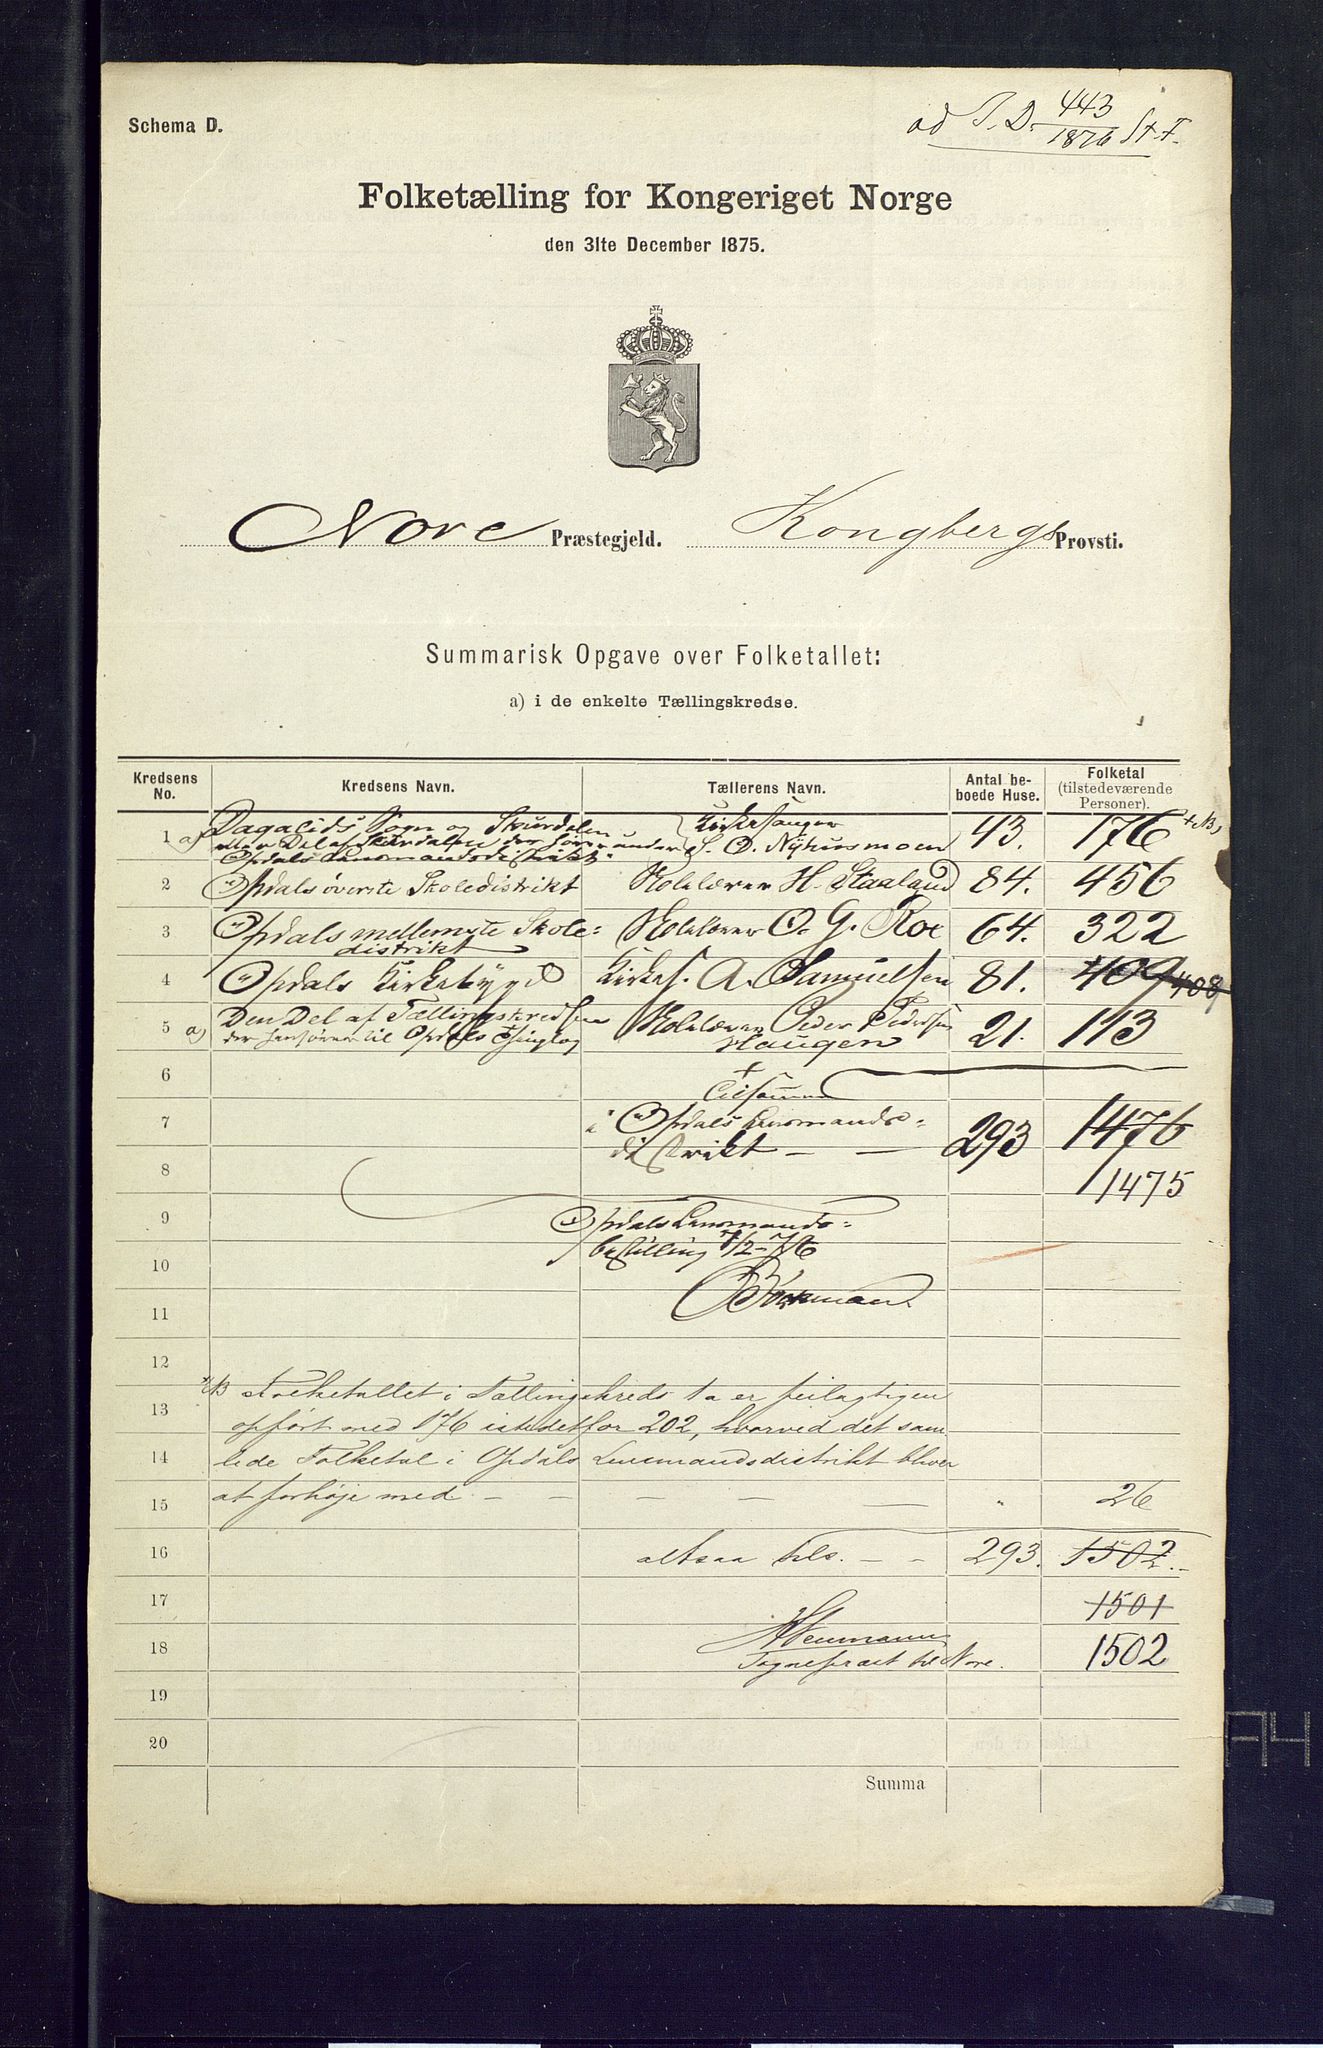 Schema D.
ad J. D. 443/1876 St. F.
Folketælling for Kongeriget Norge
den 31te December 1875.
Nore Præstegjeld. Kongbergs Provsti.
Summarisk Opgave over Folketallet:
a) i de enkelte Tællingskredse.
Kredsens No. Kredsens Navn. Tællerens Navn. Antal beboede Huse. Folketal (tilstedeværende Personer).
1 a) Dagalids Sogn og Skurdalen Kirkesanger
Del af Skurdalen der hører under S. O. Nyhusmoen 43. 176 + NB)
Opdals Lensmandsdistrikt.
2 Opdals överste Skoledistrikt Skolelærer H. Staaland 84. 456
3 Opdals mellemste Skole= Skolelærer O. G. Roe 64. 322
distrikt
4 Opdals Kirkebygd Kirkes. A. Samuelsen 81. 409 408
5 a) Den Del af Tællingskredsen Skolelærer Peder Pedersen 21. 113
der henhører til Opdals Thinglag Haugen
6
Tilsammen
7 i Opdals Lensmands= 293 1476
distrikt — —
8 1475
9 Opdals Lensmands=
bestilling 7/2-76
10
11
12
NB Folketallet i Tællingskreds 1a er feilagtigen
13 opført med 176 istedetfor 202, hvorved det sam
14 lede Folketal i Opdals Lensmandsdistrikt bliver
15 at forhøje med — — — — — " 26
16 altsaa tils. — — 293. 1502.
17 1501
18 1502
Sognepræst til Nore.
19
20
Summa
A4